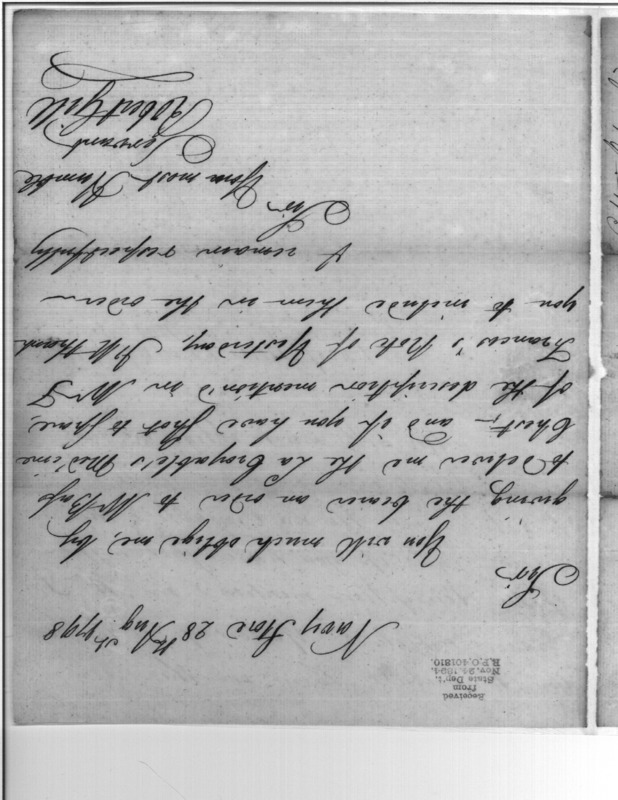 Received
from
State Dep't.
Nov. 24, 1894.
R.P.O. 401810.
Navy Store 28th Augst 1798
Sir
You will much oblige me, by
giving the bearer an order to Mr
to deliver me the La Croyable's Med'cine
Chest, – and if you have Shot to spare,
of the description mention'd in Mr
Francis's Note of Yesterday, I'll thank
you to include them in the order
I remain respectfully
Sir
Your most Humble
Servant
Robert Gill